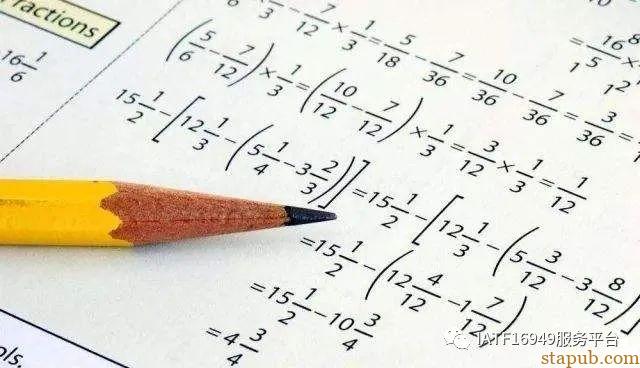 ractions
16 1/6
3/7 × 1/3 = 5/18 - 7/36 = 10/36 - 7/36 = 3/36 = 1
(5/6 - 7/12) × 1/3 = (10/12 - 7/12) × 1/3 = 3/12 × 1/3 = 1/12
15 1/2 - [12 1/3 - (5 1/4 - 3 2/3)] = 15 1/2 - [12 1/3 - (5 3/12 - 3 8/12)]
= 15 1/2 - (12 4/12 - 1 7/12)
= 15 1/2 - 10 3/4
= 4 3/4
ols.
IATF16949服务平台
stapub.com